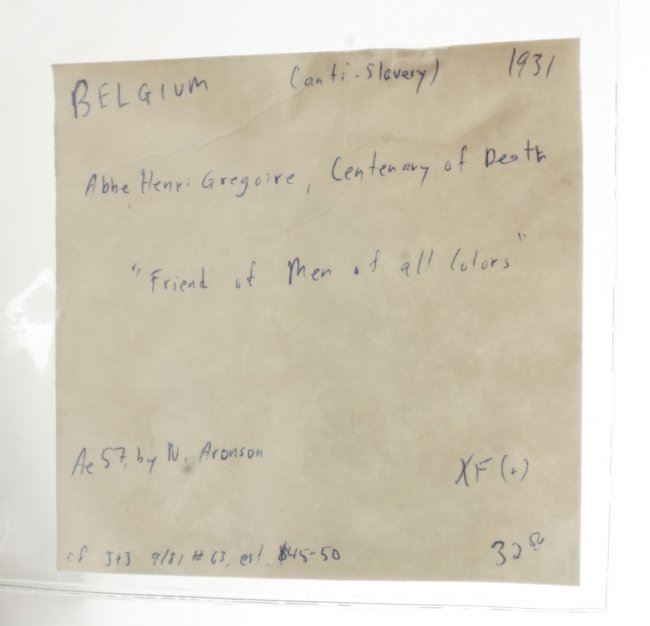 BELGIUM (anti-Slavery) 1931
Abbe Henri Gregoire, Centenary of Death
"Friend of Men of all Colors"
Ae 57, by N. Aronson
XF (+)
cf J+J 9/81 # 63, est. $45-50
32 50